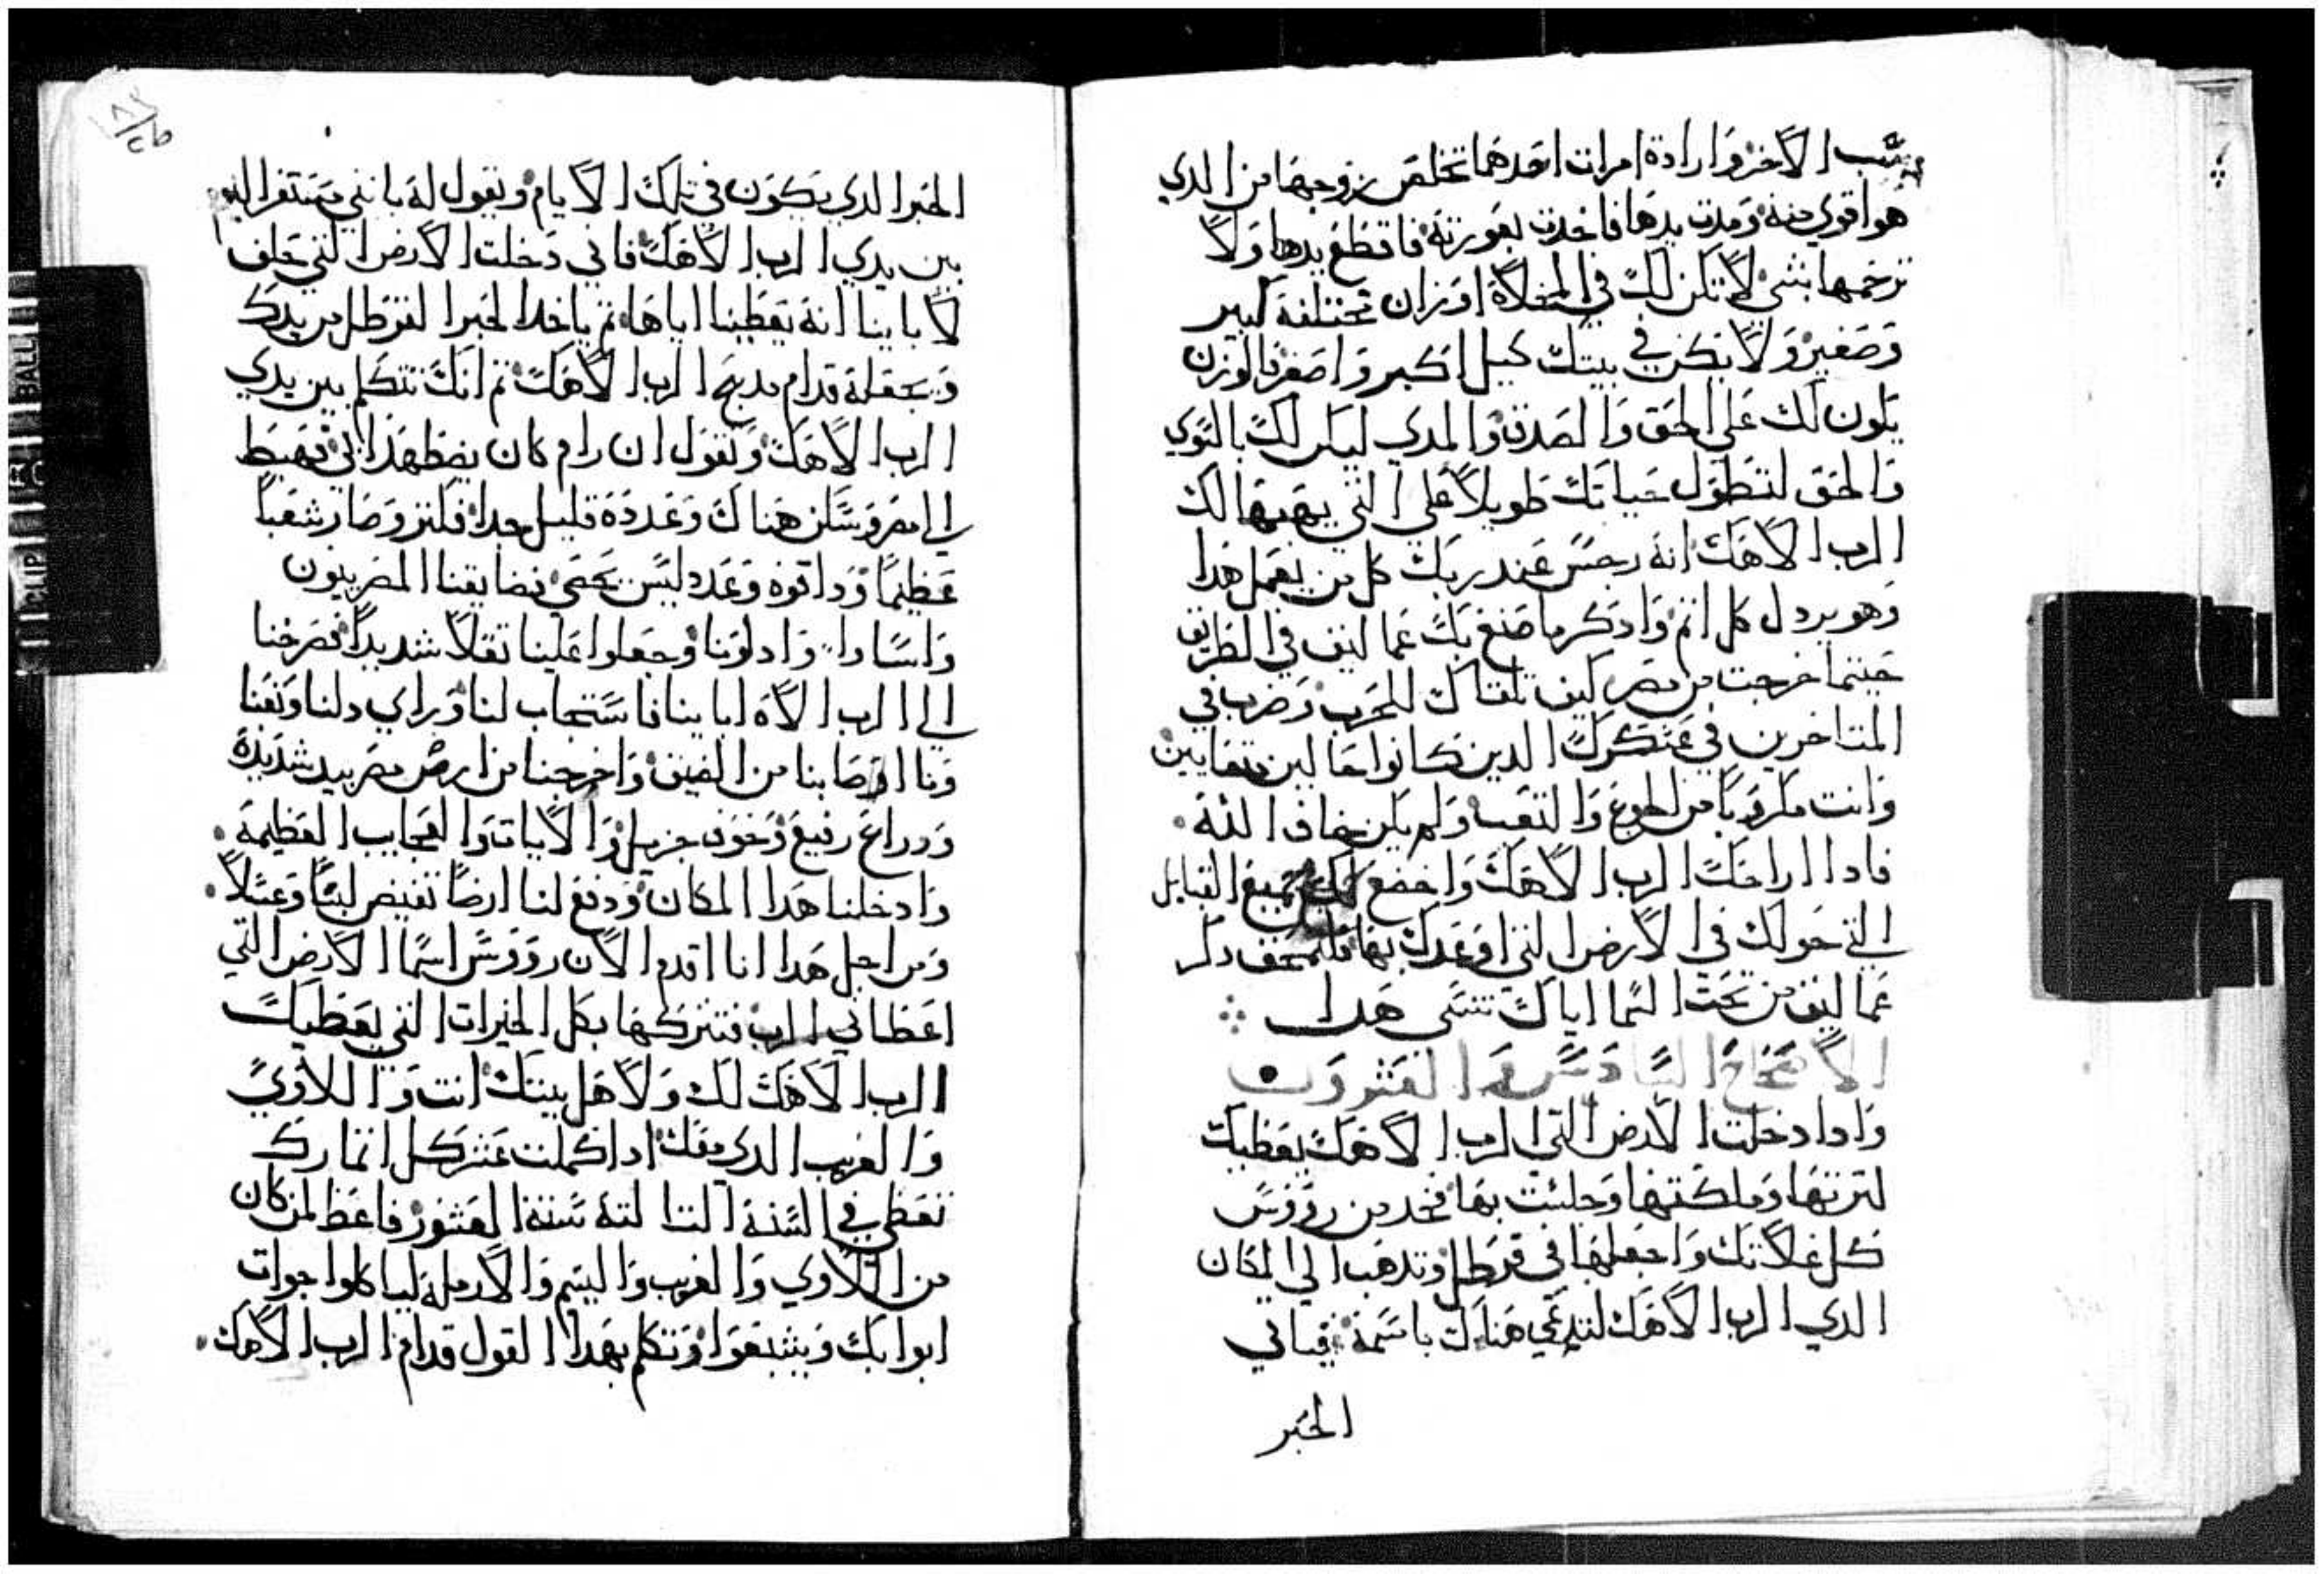 سب الاخر وارادة امرات احدهما تخلص زوجها من الدي
هو اقوي منه ومدت يدها فاخدت بعورته فاقطع يدها ولا
ترحمها بشي لا تكن لك في المخلاة اوزان مختلفة كبير
وصغير ولا يكن في بيتك كيل اكبر واصغر فالوزن
يكون لك علي الحق والصدق والمدي ليكن لك بالسوي
والحق لتطول حياتك طويلا علي التي يهبها لك
الرب الاهك انه رجس عند ربك كل من يعمل هدا
وهو يردل كل اتم وادكر ما صنع بك عماليق في الطريق
حينما خرجت من مصر كيف تلقاك للحرب وضرب في
المتاخرين في عسكرك الدين كانوا حالين متعابين
وانت مكروبا من الجوع والتعب ولم يكن يخاف الله
فادا اراحك الرب الاهك واخضع لك جميع القبايل
التي حولك في الارض التي اوعدك بها فلتمحق دكر
عماليق من تحت السما اياك تنسي هدا
الاصحاح السادس والعشرون
وادا دخلت الارض التي الرب الاهك يعطيك
لترتها وملكتها وجلست بها فخد من رووس
كل غلاتك واجعلها في قرطل وتدهب الي المكان
الدي الرب الاهك لتدعي هناك باسمه فياتي
الحبر
الحبر الدي يكون في تلك الايام وتقول له بانني معتقر اليوم
بين يدي الرب الاهك فاني دخلت الارض التي حلف
لاباينا انه يعطينا اياها تم ياخد الحبر القرطل من يدك
ويجعله قدام مدبح الرب الاهك تم انك تتكلم بين يدي
الرب الاهك وتقول ان رام كان يضطهد ابي فهبط
الي مصر وسكن هناك وعدده قليل جدا فكتر وصار شعبا
عظيما ودا قوه وعدد ليس يحصي فضايقنا المصريون
واساوا وادلونا وجعلوا علينا تقلا شديدا فصرخنا
الي الرب الاه اباينا فاستجاب لنا وراي دلنا وتعبنا
وما اصابنا من الضيق واخرجنا من ارض مصر بيد شديدة
ودراع رفيع وخوف جزيل والايات والعجايب العظيمة
وادخلنا هدا المكان ودفع لنا ارضا تفيض لبنا وعسلا
ومن اجل هدا انا اقدم الان رووس اتما الارض التي
اعطاني الرب فتتركها بكل الخيرات التي يعطيك
الرب الاهك لك ولاهل بيتك انت واللاوي
والغريب الدي معك ادا كملت عشر كل اتمارك
تعطي في السنة التالتة سنة العشور فاعط لمن كان
من اللاوي والغريب واليتيم والارملة لياكلوا جوات
ابوابك ويشبعوا وتكلم بهدا القول قدام الرب الاهك